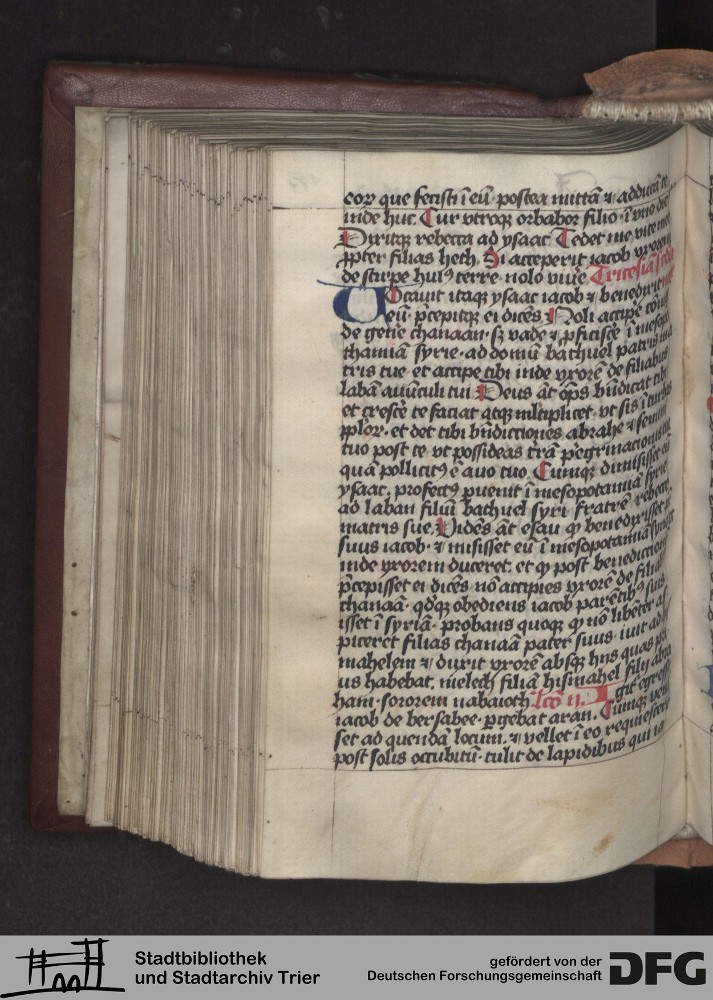 coꝝ que fecisti ī eū· postea mittā ⁊ adducā te
inde huc. Cur vtroqꝫ orbabor filio· ī vno die
Dixitqꝫ rebecca ad ysaac Tedet me vite mee
ꝓpter filias heth. Si acceperit iacob vxorem
de stirpe huiꝰ terre· nolo viue᷑. Tricesiā
Vocauit itaqꝫ ysaac iacob ⁊ benedixit
eū· p̄cepitqꝫ ei dicēs Noli accipe᷑
de gen̄e chanaan· sꝫ vade ⁊ ꝓficisce᷑ ī mesopo
thamiā syrie· ad domū bathuel patris ma
tris tue· et accipe tibi inde vxorē de filiabus
labā auūculi tui. Deus āt om̄ps bn̄dicat tibi
et cresce᷑ te faciat atqꝫ ml̄tiplicet· vt sis ī turbas
ppl̄oꝝ· et det tibi bn̄dictiones abrahe ⁊ semini
tuo post te· vt possideas t̄rā peg̓rinacionis tue
quā pollicitꝰ ē auo tuo. Cumqꝫ dimisisset eū
ysaac· profectꝰ puenit ī mesopotamiā syrie
ad laban filiū bathuel syri fratrē rebecce
matris sue. Vidēs āt esau ꝙ benedixisset pr̄
suus iacob· ⁊ misisset eū ī mesopotamiā syrie vt
inde vxorem duceret· et ꝙ post benedictionē
p̄cepisset ei dicēs nō accipies vxorē de filiabꝰ
chanaā· qd̓qꝫ obediens iacob parētibꝰ suis
isset ī syriā· probans quoqꝫ ꝙ nō libēter as
piceret filias chanaā pater suus· iuit ad his
mahelem ⁊ duxit vxorē absqꝫ hijs quas pri
us habebat· meleth filiā hismahel filij abra
ham· sororem nabaioth. lc̄o ii. Igit᷑ egressꝰ
iacob de bersabee· p̄gebat aran. Cumqꝫ venis
set ad quendā locum· ⁊ vellet ī eo requiescere
post solis occubitū· tulit de lapidibus qui ia
Stadtbibliothek
und Stadtarchiv Trier
gefördert von der
Deutschen Forschungsgemeinschaft
DFG